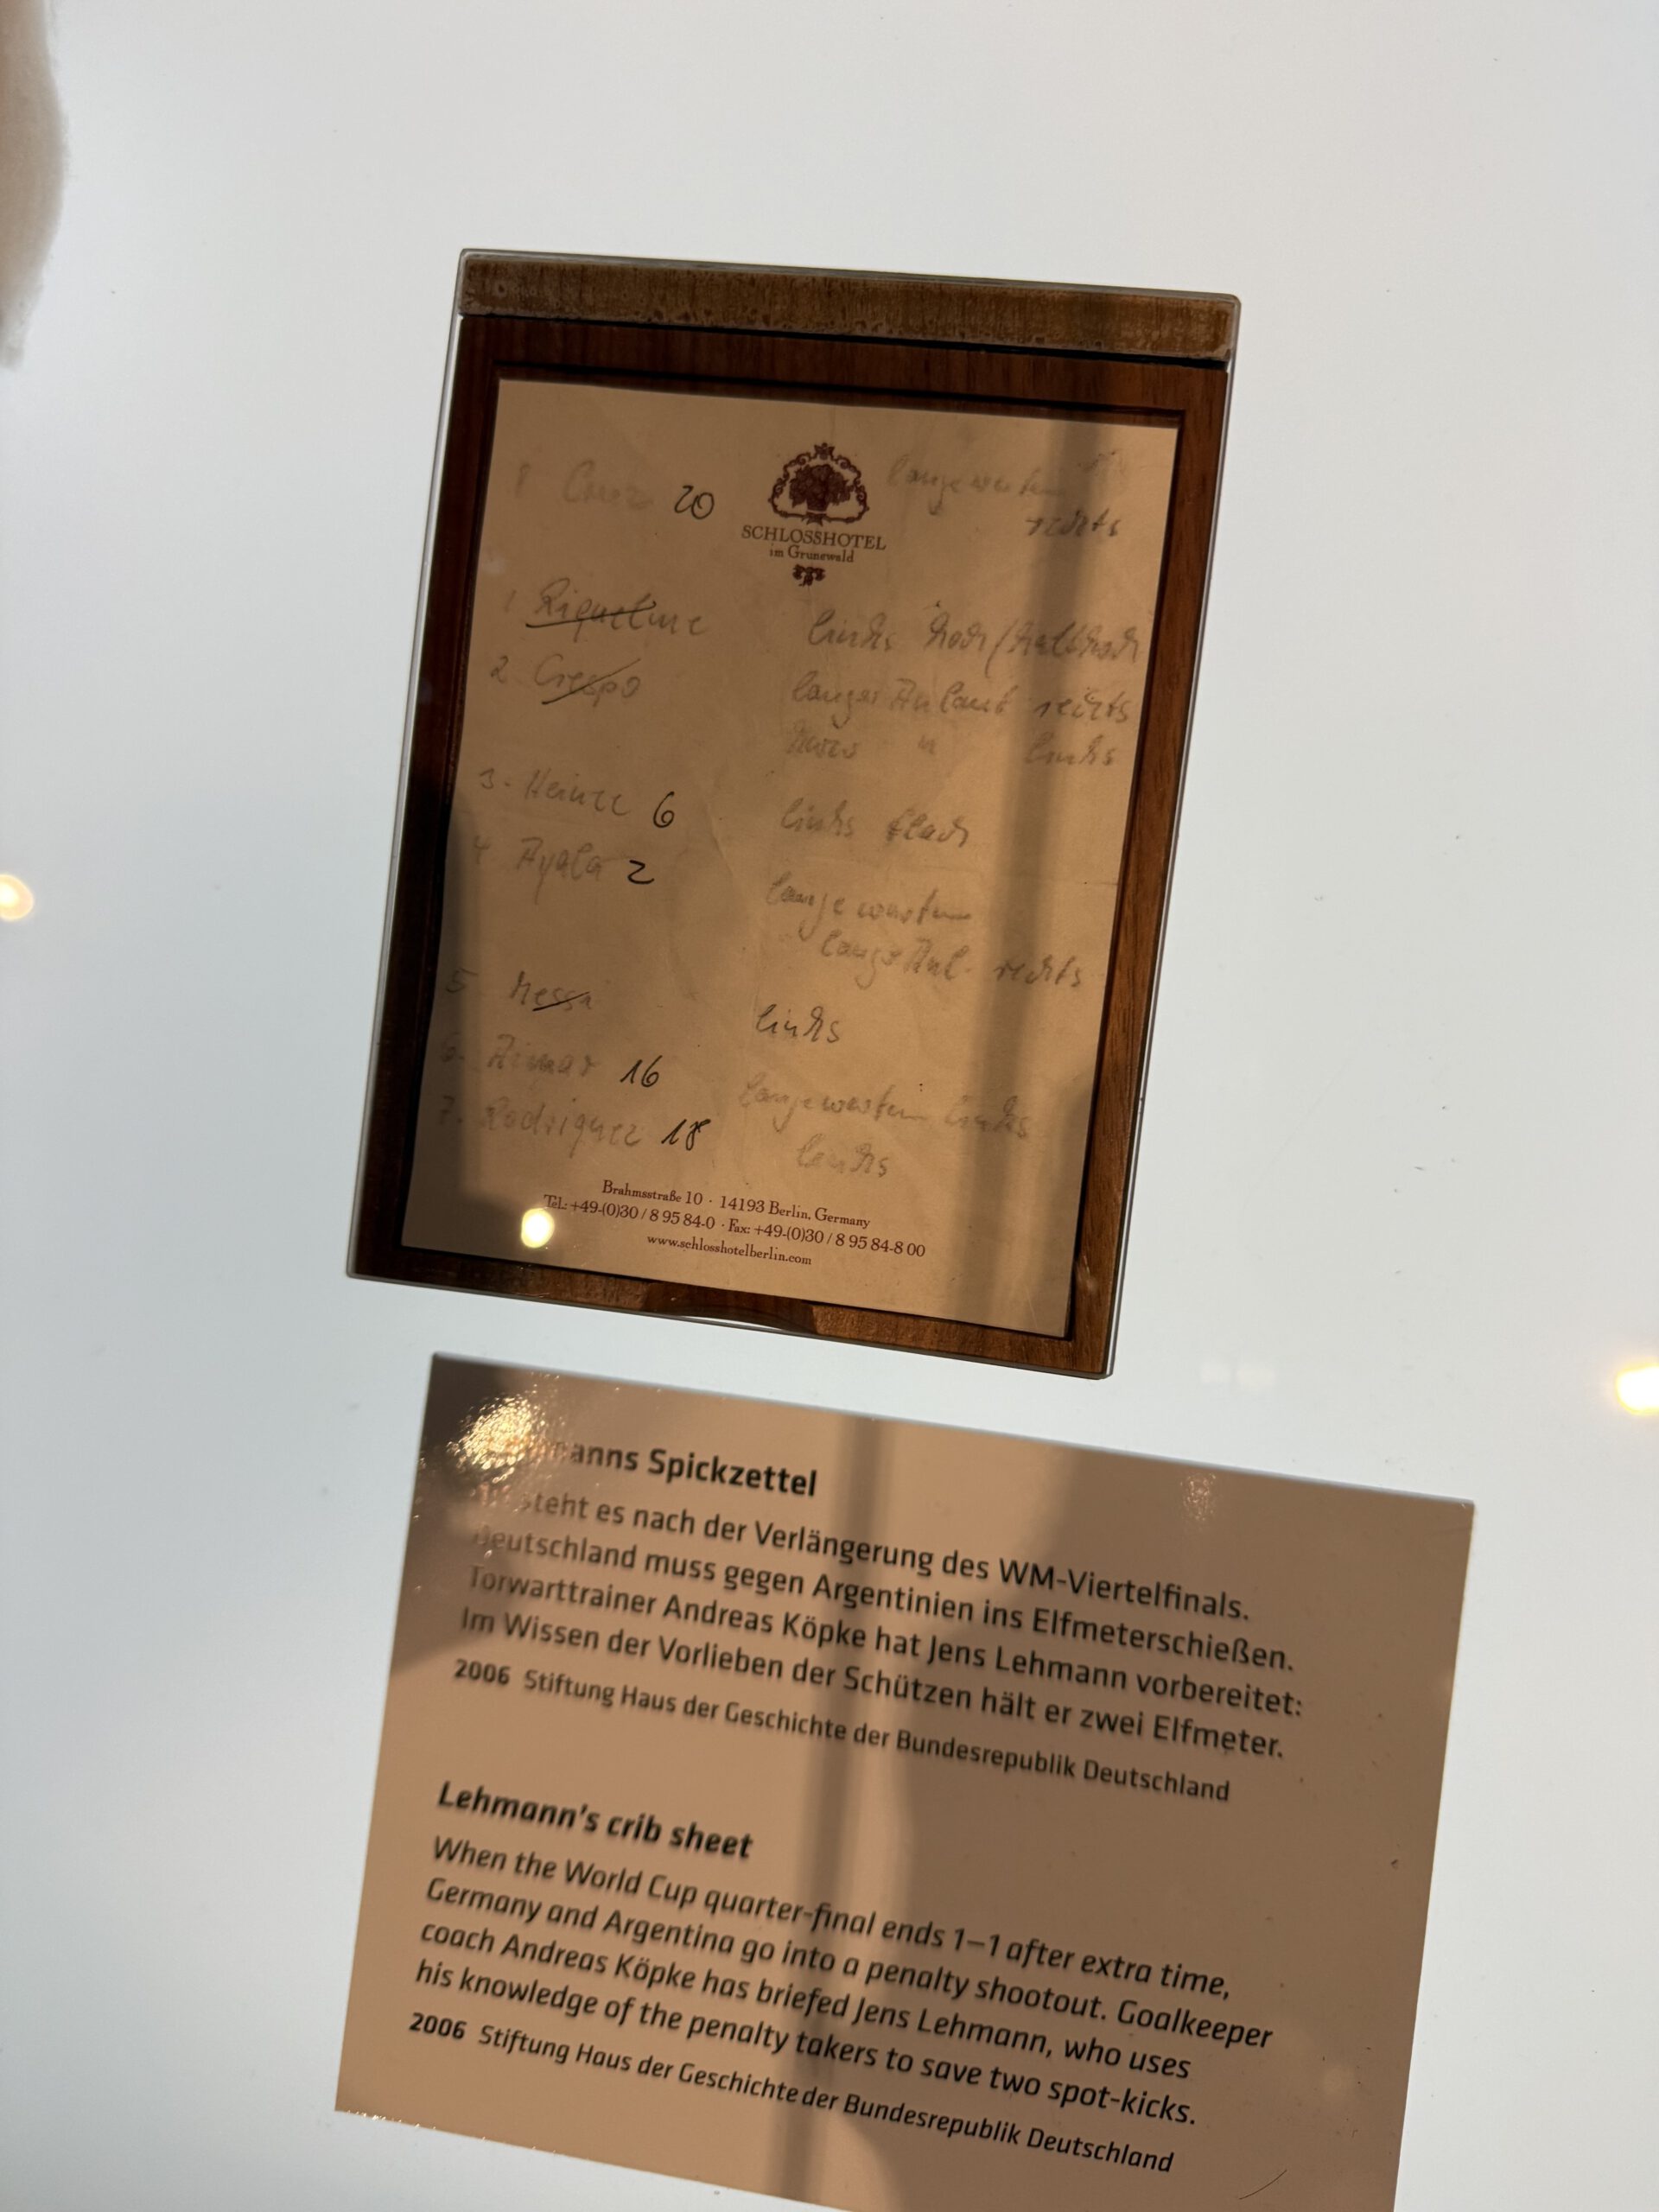 Cruz 20 lange warten
rechts
SCHLOSSHOTEL
im Grunewald
1 Riquelme links hoch/halbhoch
2 Crespo langer Anlauf rechts
kurz " links
3. Heinze 6 links flach
4 Ayala 2 lange warten
lange Anl. rechts
5 Messi links
6. Aimar 16 lange warten links
7. Rodriguez 18 links
Brahmsstraße 10 · 14193 Berlin, Germany
Tel.: +49-(0)30 / 8 95 84-0 · Fax: +49-(0)30 / 8 95 84-8 00
www.schlosshotelberlin.com
Spickzettel
steht es nach der Verlängerung des WM-Viertelfinals.
Deutschland muss gegen Argentinien ins Elfmeterschießen.
Torwarttrainer Andreas Köpke hat Jens Lehmann vorbereitet:
Im Wissen der Vorlieben der Schützen hält er zwei Elfmeter.
2006 Stiftung Haus der Geschichte der Bundesrepublik Deutschland
Lehmann's crib sheet
When the World Cup quarter-final ends 1–1 after extra time,
Germany and Argentina go into a penalty shootout. Goalkeeper
coach Andreas Köpke has briefed Jens Lehmann, who uses
his knowledge of the penalty takers to save two spot-kicks.
2006 Stiftung Haus der Geschichte der Bundesrepublik Deutschland